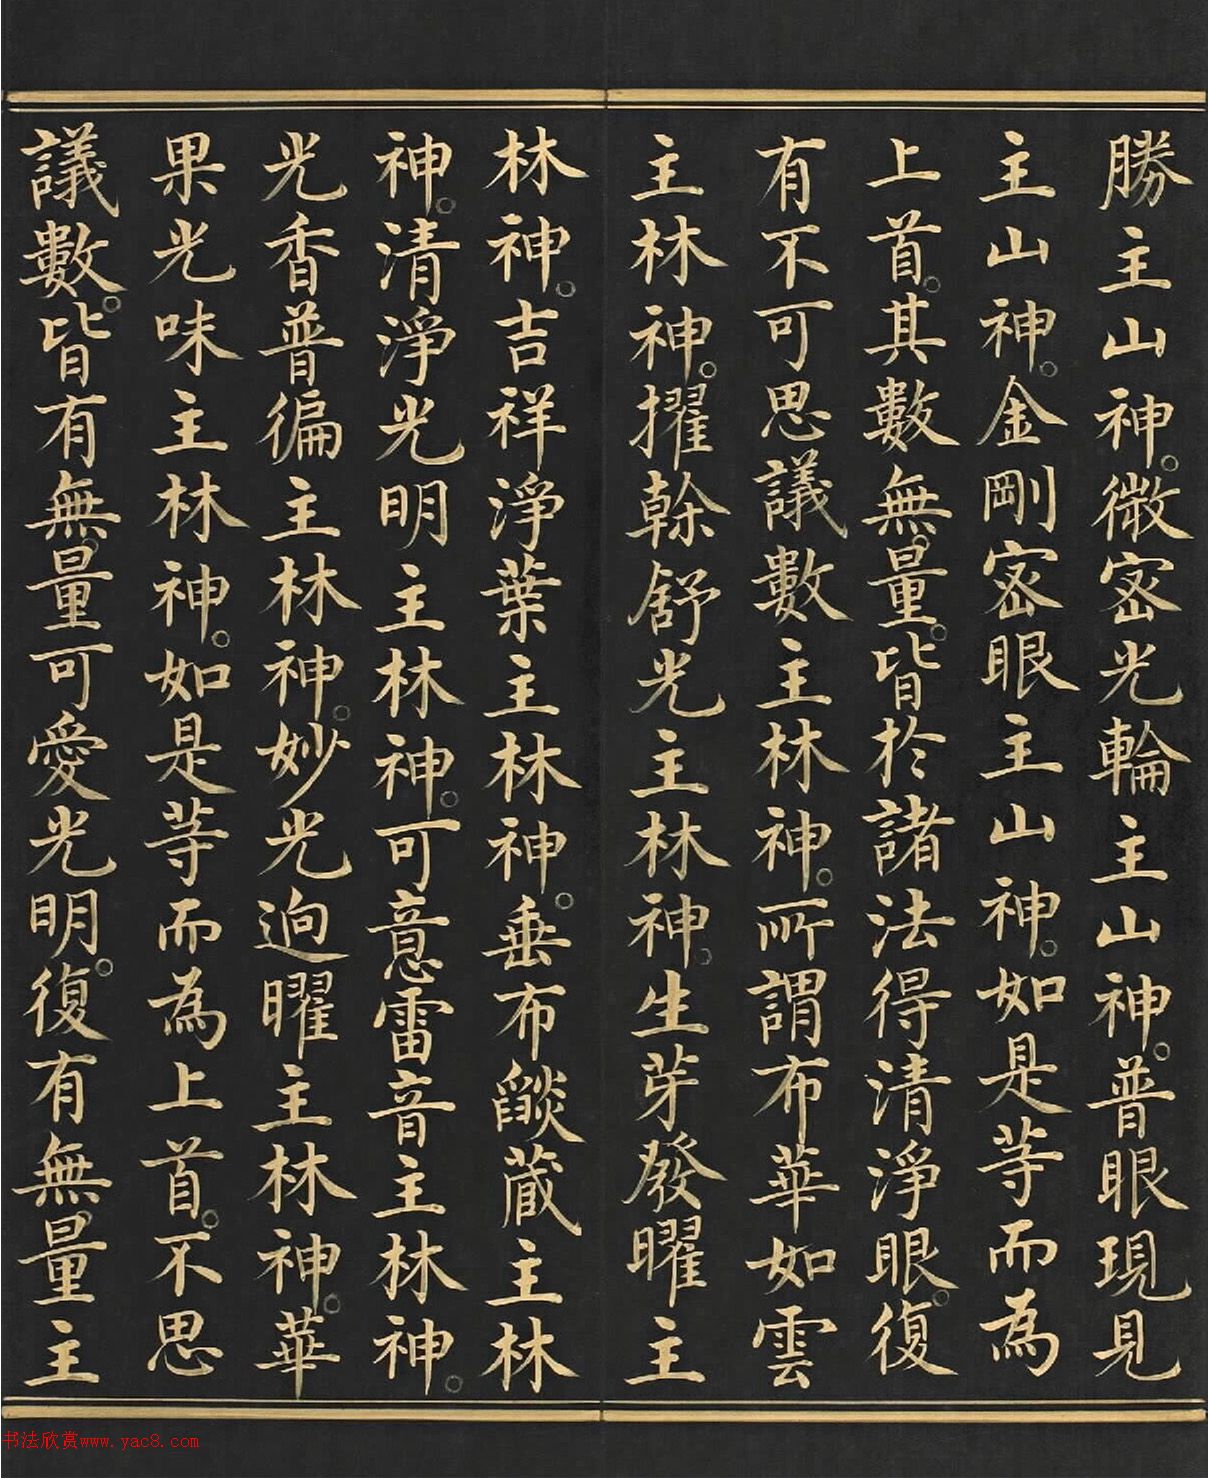 勝主山神。微密光輪主山神。普眼現見
主山神。金剛密眼主山神。如是等而為
上首。其數無量。皆於諸法得清淨眼。復
有不可思議數主林神。所謂布華如雲
主林神。擢幹舒光主林神。生芽發曜主
林神。吉祥淨葉主林神。垂布燄藏主林
神。清淨光明主林神。可意雷音主林神。
光香普徧主林神。妙光逈曜主林神。華
果光味主林神。如是等而為上首。不思
議數。皆有無量可愛光明。復有無量主
书法欣赏www.yac8.com